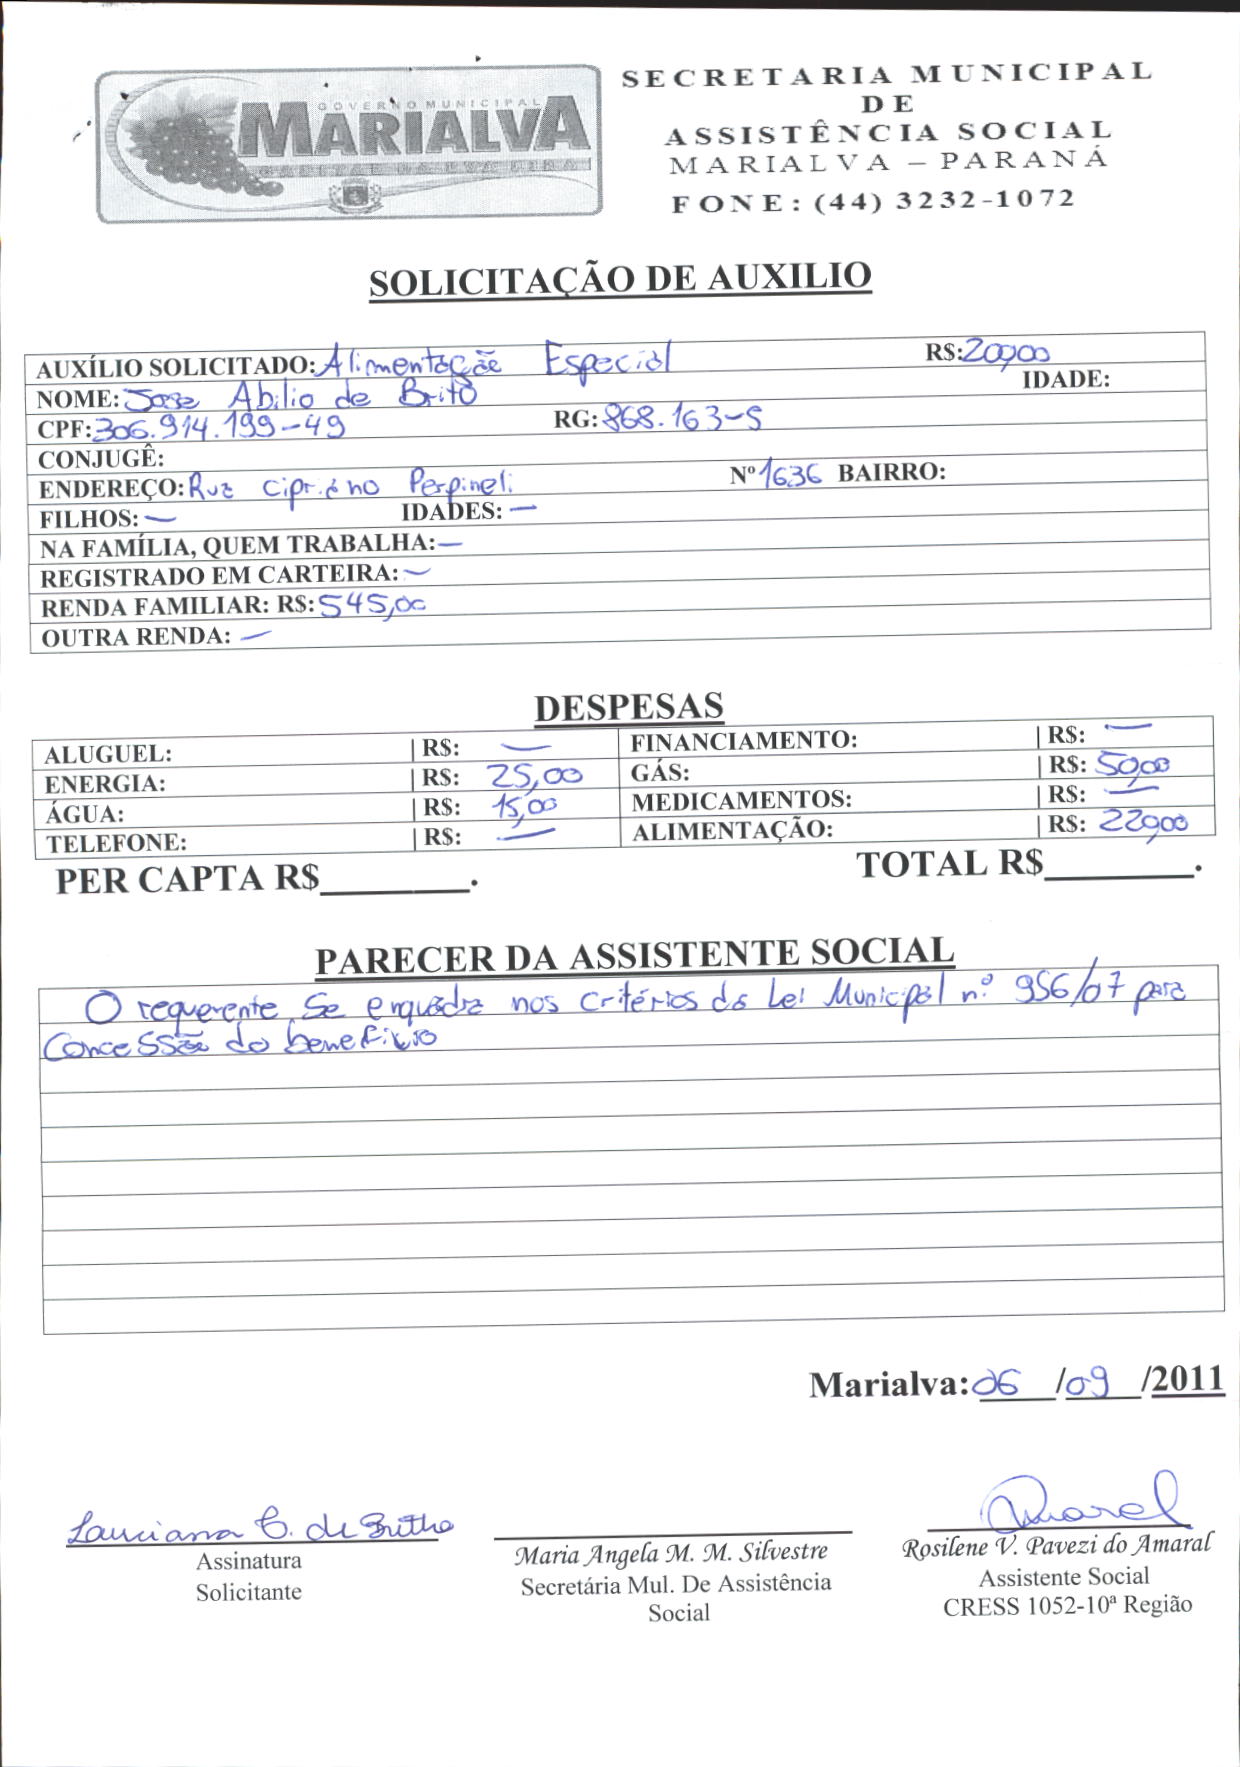 GOVERNO MUNICIPAL
MARIALVA
CAPITAL DA UVA FINA
SECRETARIA MUNICIPAL
DE
ASSISTÊNCIA SOCIAL
MARIALVA – PARANÁ
FONE: (44) 3232-1072
SOLICITAÇÃO DE AUXILIO
AUXÍLIO SOLICITADO: Alimentação Especial R$: 200,00
NOME: Jose Abilio de Brito IDADE:
CPF: 306.914.199-49 RG: 868.163-5
CONJUGÊ:
ENDEREÇO: Rua Cipriano Perpineli Nº 1636 BAIRRO:
FILHOS: — IDADES: —
NA FAMÍLIA, QUEM TRABALHA: —
REGISTRADO EM CARTEIRA: —
RENDA FAMILIAR: R$: 545,00
OUTRA RENDA: —
DESPESAS
ALUGUEL: | R$: — FINANCIAMENTO: | R$: —
ENERGIA: | R$: 25,00 GÁS: | R$: 50,00
ÁGUA: | R$: 15,00 MEDICAMENTOS: | R$: —
TELEFONE: | R$: — ALIMENTAÇÃO: | R$: 220,00
PER CAPTA R$________. TOTAL R$________.
PARECER DA ASSISTENTE SOCIAL
O requerente se enquadra nos critérios da Lei Municipal nº 956/07 para
Concessão do beneficio
Marialva: 06 /09 /2011
Lauriana C. de Britho
Amaral
Assinatura
Solicitante
Maria Angela M. M. Silvestre
Secretária Mul. De Assistência
Social
Rosilene V. Pavezi do Amaral
Assistente Social
CRESS 1052-10ª Região